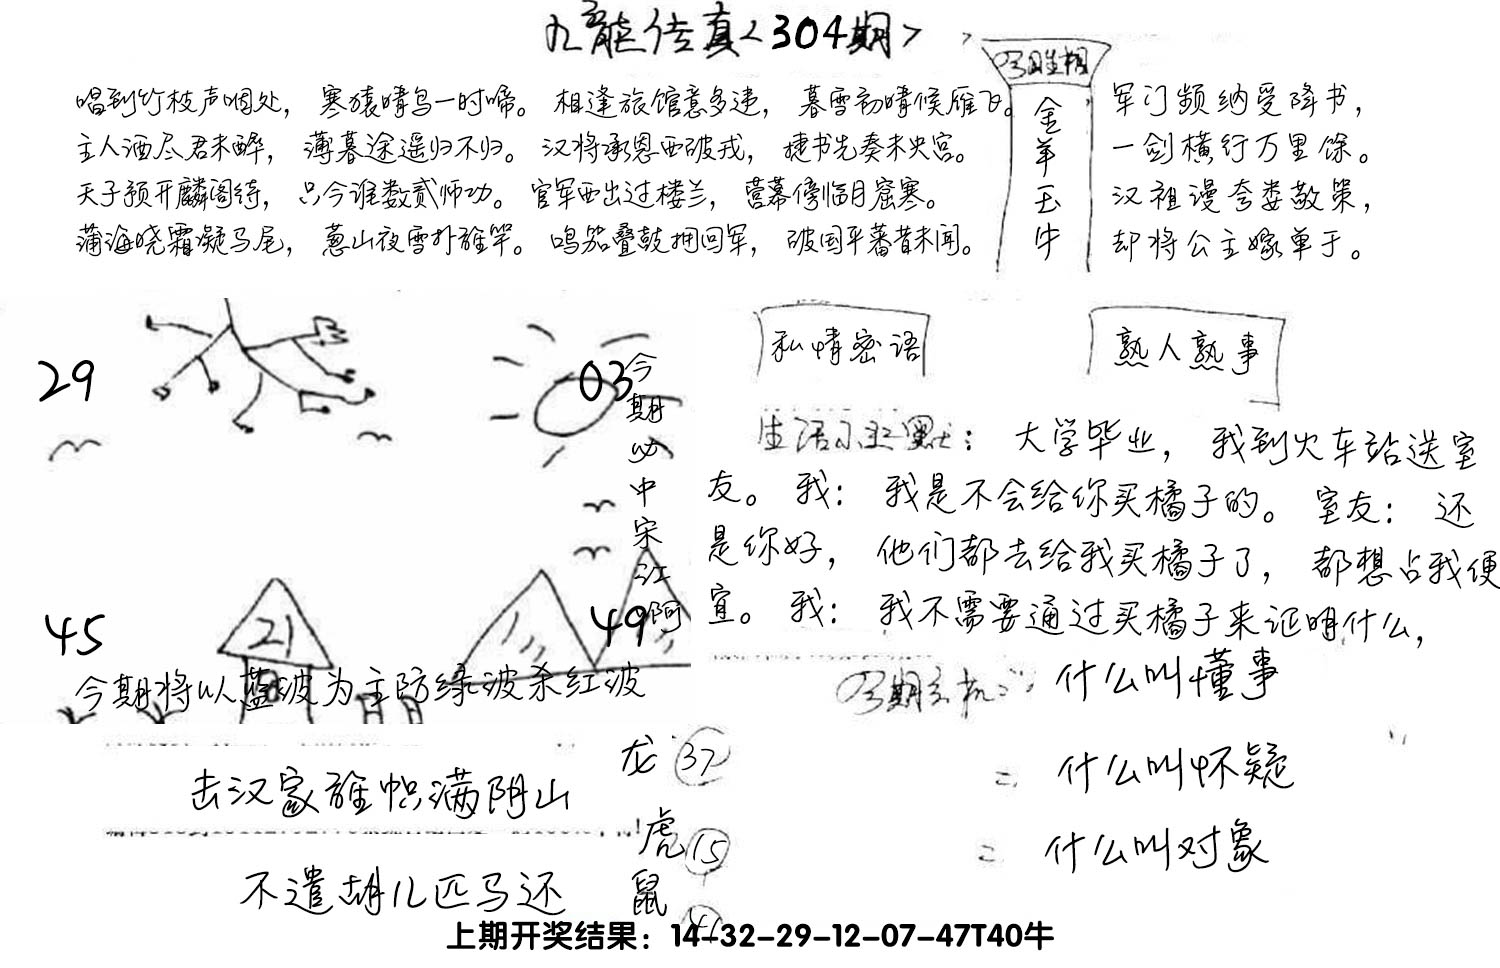 九龍传真<304期>
唱到竹枝声咽处，寒猿晴鸟一时啼。相逢旅馆意多违，暮雪初晴候雁飞。
主人酒尽君未醉，薄暮途遥归不归。汉将承恩西破戎，捷书先奏未央宫。
天子预开麟阁待，只今谁数贰师功。官军西出过楼兰，营幕傍临月窟寒。
蒲海晓霜凝马尾，葱山夜雪扑旌竿。鸣笳叠鼓拥回军，破国平蕃昔未闻。
今期生相
金羊玉牛
军门频纳受降书，
一剑横行万里馀。
汉祖谩夸娄敬策，
却将公主嫁单于。
29
03
45
21
49
今期必中宋江啊
今期将以蓝波为主防绿波杀红波
私情密语
熟人熟事
生活小幽默：大学毕业，我到火车站送室
友。我：我是不会给你买橘子的。室友：还
是你好，他们都去给我买橘子了，都想占我便
宜。我：我不需要通过买橘子来证明什么，
今期玄机：什么叫懂事
二 什么叫怀疑
二 什么叫对象
击汉家旌帜满阴山
不遣胡儿匹马还
龙 37
虎 15
鼠
上期开奖结果：14-32-29-12-07-47T40牛